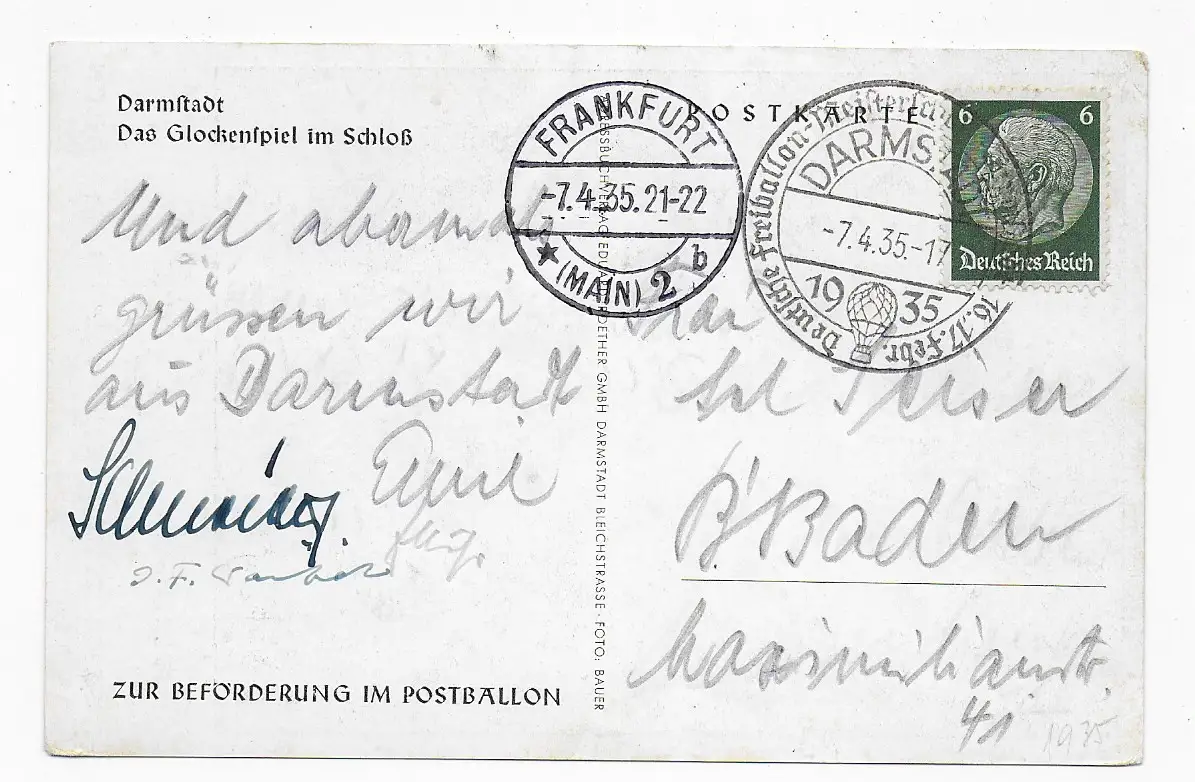 Darmstadt
Das Glockenspiel im Schloß
POSTKARTE
FRANKFURT
-7.4.35.21-22
(MAIN) 2 b
Deutsche Freiballon-Meistersch
DARMS
-7.4.35.-17
1935
16.17. Febr.
6 6
Deutsches Reich
Und abends
grüssen wir
aus Darmstadt
Emil
ZUR BEFÖRDERUNG IM POSTBALLON
GMBH DARMSTADT BLEICHSTRASSE · FOTO: BAUER
B'Baden
Maximilianstr.
41
1935